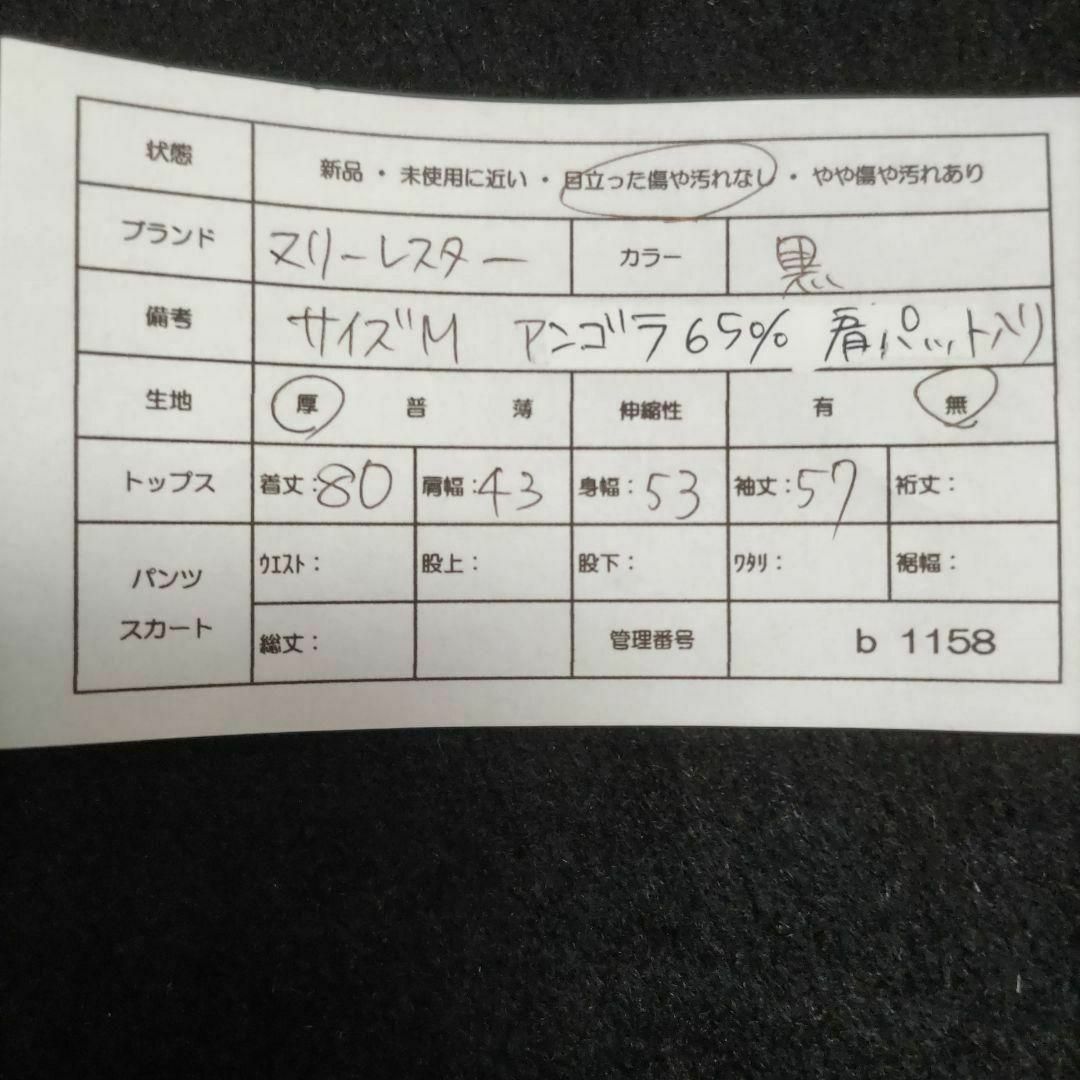 状態 新品・未使用に近い・目立った傷や汚れなし・やや傷や汚れあり
ブランド マリーレスター カラー 黒
備考 サイズM アンゴラ65% 肩パット入り
生地 厚 普 薄 伸縮性 有 無
トップス 着丈:80 肩幅:43 身幅:53 袖丈:57 裄丈:
パンツ スカート ウエスト: 股上: 股下: ワタリ: 裾幅:
総丈: 管理番号 b 1158